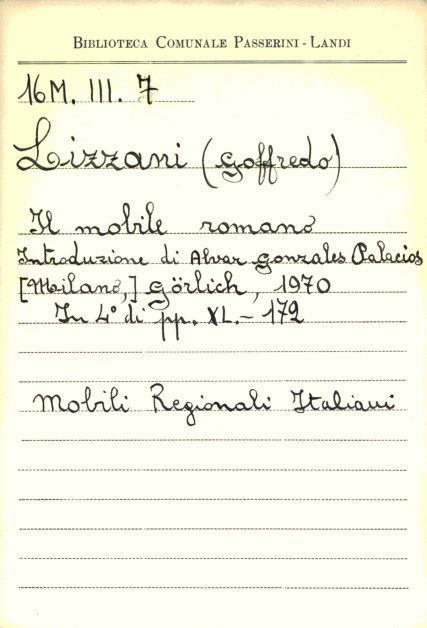 BIBLIOTECA COMUNALE PASSERINI - LANDI
16M. III. 7
Lizzani (Goffredo)
Il mobile romano
Introduzione di Alvar Gonzales Palacios
[Milano,] Görlich, 1970
In 4° di pp. XL. - 172
Mobili Regionali Italiani